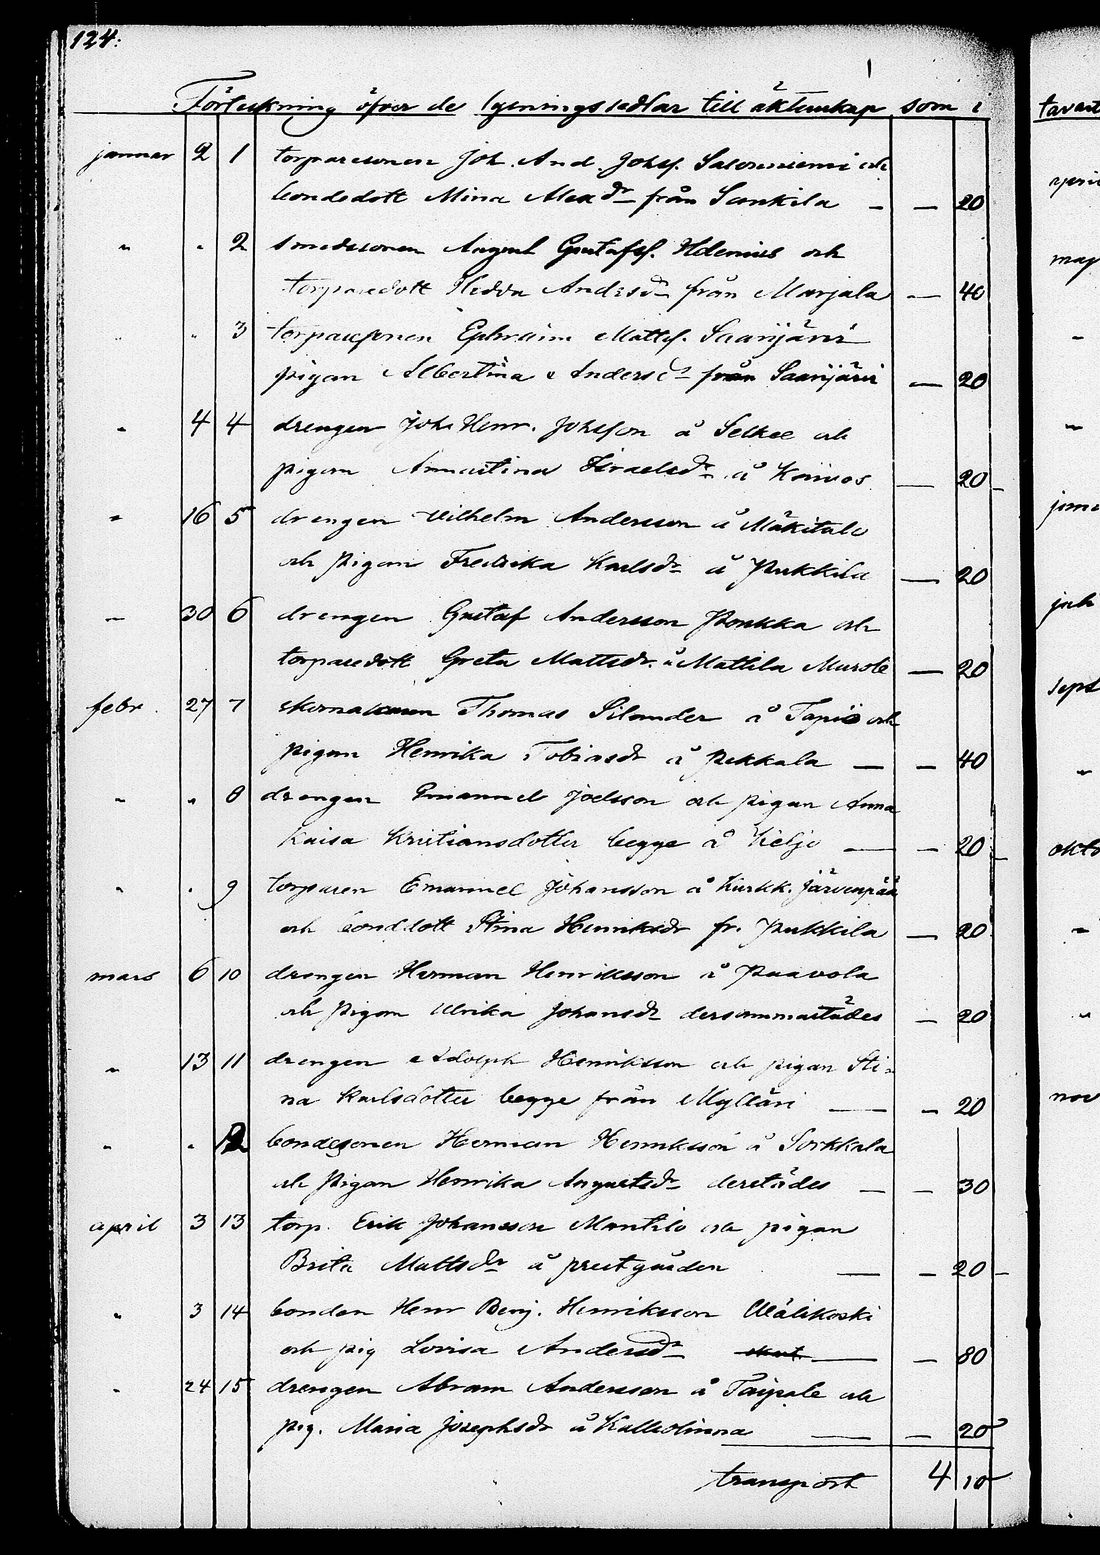 124:
Förteckning öfver de lysningssedlar till äktenskap som i
januar 2 1 torparesonen Joh. And. Johsf. Saloniemi och
bondedott Mina Alexdr från Sankila — — 20
" " 2 smedssonen August Gustafsf. Helenius och
torparedott Hedda Andersdr från Marjala — 40
" " 3 torparesonen Ephraim Mattsf. Saarijärvi
pigan Albertina Andersdr från Saarijärvi — 20
" 4 4 drengen Joh. Henr. Johsson å Selkee och
pigan Annastina Israelsdr å Koivos — 20
" 16 5 drengen Vilhelm Andersson å Mäkitalo
och pigan Fredrika Karlsdr å Pukkila — 20
" 30 6 drengen Gustaf Andersson Ronkka och
torparedott Greta Mattsdr å Mattila Murole — 20
febr. 27 7 Thomas Silander å Tapio och
pigan Henrika Tobiasdr å Pekkala — — 40
" " 8 drengen Emanuel Joelsson och pigan Anna
Kaisa Kristiansdotter begge å Keljo — — 20
" " 9 torparen Emanuel Johansson å Kurkk. Järvenpää
och bonddott Stina Henriksdr fr. Pukkila — 20
mars 6 10 drengen Herman Henriksson å Paavola
och pigan Ulrika Johansdr dersammastädes — 20
" 13 11 drengen Adolph Henriksson och pigan Sti-
na Karlsdotter begge från Mylläri — — 20
" " 12 bondesonen Herman Henriksson å Sorkkala
och pigan Henrika Augustsdr derstädes — — 30
april 3 13 torp. Erik Johansson Mantilo och pigan
Brita Mattsdr å prestgården — — 20
" 3 14 bonden Henr Benj. Henriksson Wälikoski
och pig Lovisa Andersdr — — 80
" 24 15 drengen Abram Andersson å Taipale och
pig. Maria Josephsdr å Kallvolinna — — 20
transport 4 10